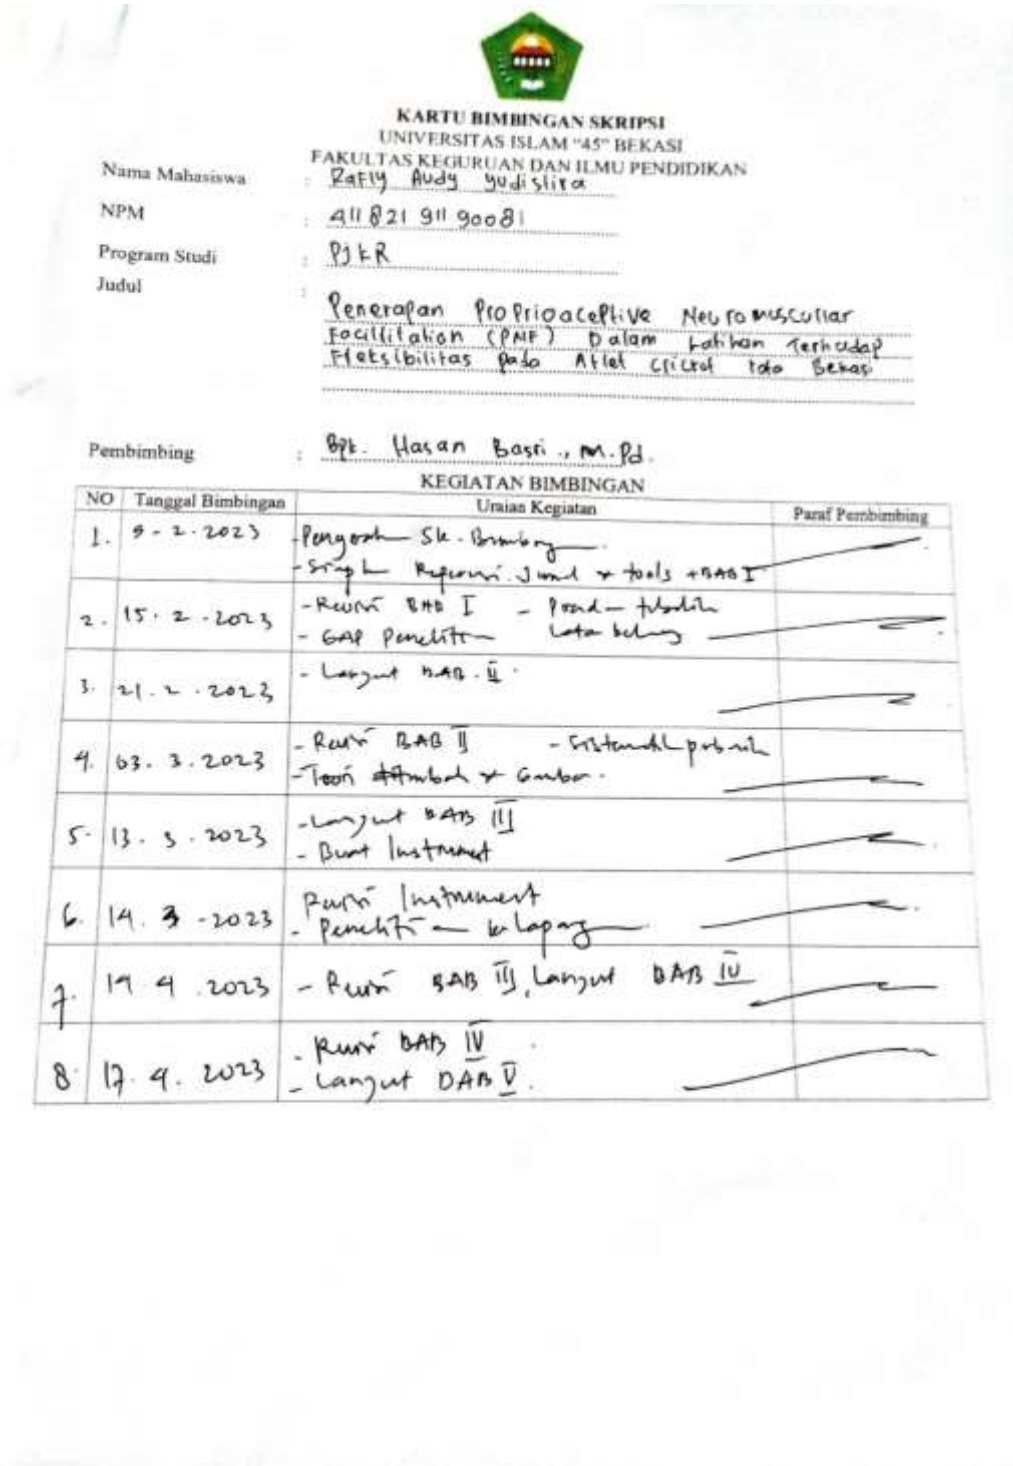 KARTU BIMBINGAN SKRIPSI
UNIVERSITAS ISLAM "45" BEKASI
FAKULTAS KEGURUAN DAN ILMU PENDIDIKAN
Nama Mahasiswa : Rafly Audy Yudistira
NPM : 41182191190081
Program Studi : PJKR
Judul : Penerapan Proprioaceptive Neuromuscullar
Facillitation (PNF) Dalam Latihan Terhadap
Fleksibilitas pada Atlet Cricket Kota Bekasi
Pembimbing : Bpk. Hasan Basri., M.Pd.
KEGIATAN BIMBINGAN
NO Tanggal Bimbingan Uraian Kegiatan Paraf Pembimbing
1. 9-2-2023 - SK.
- & tools + BAB I
2. 15-2-2023 - Revisi BAB I -
- GAP Penelitian Latar belakang
3. 21.2.2023 - Lanjut BAB.II.
4. 03.3.2023 - Revisi BAB II -
- Teori ditambah & Gambar.
5. 13.3.2023 - Lanjut BAB III
- Buat Instrument
6. 14.3-2023 Revisi Instrument
- Penelitian ke lapangan
7. 4.2023 - Revisi BAB III, Lanjut BAB IV
8. 17.4.2023 - Revisi BAB IV
- Lanjut BAB V.